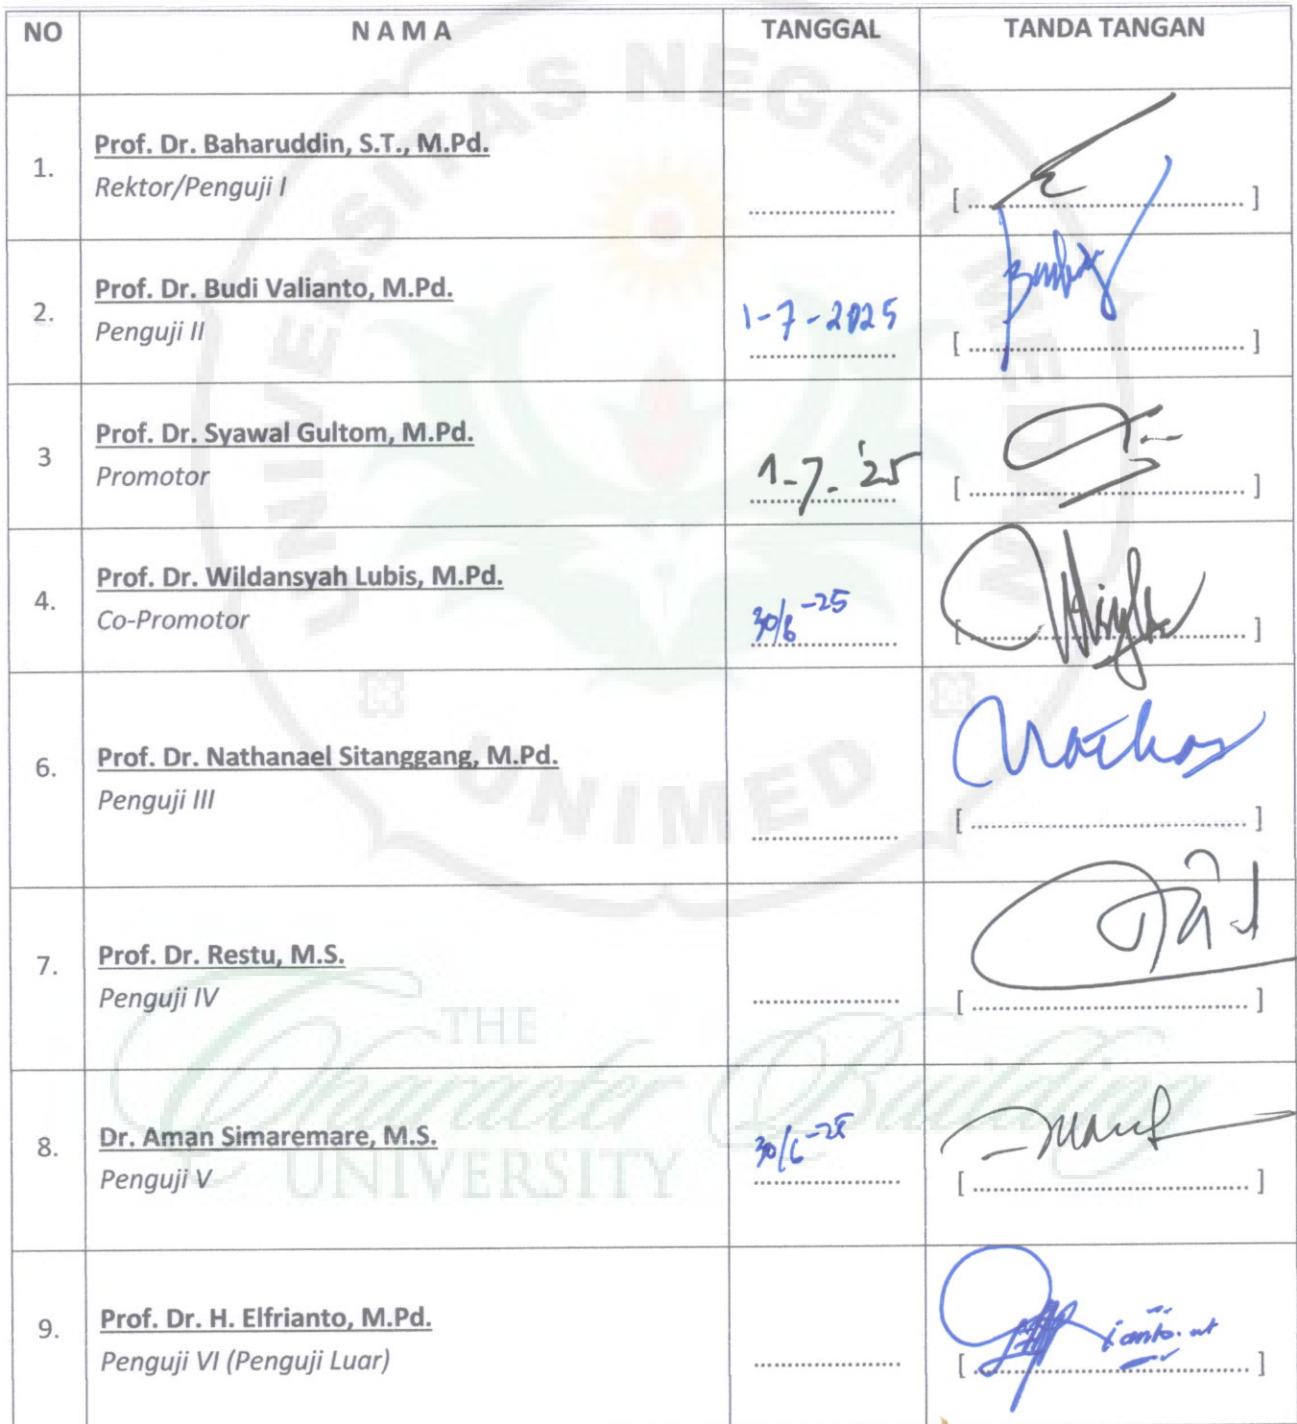 NO N A M A TANGGAL TANDA TANGAN
1. Prof. Dr. Baharuddin, S.T., M.Pd.
Rektor/Penguji I
.................... [ ........................................ ]
2. Prof. Dr. Budi Valianto, M.Pd.
Penguji II
1-7-2025
.................... [ ........................................ ]
3 Prof. Dr. Syawal Gultom, M.Pd.
Promotor
1-7-'25
.................... [ ........................................ ]
4. Prof. Dr. Wildansyah Lubis, M.Pd.
Co-Promotor
30/6-25
.................... [ ........................................ ]
6. Prof. Dr. Nathanael Sitanggang, M.Pd.
Penguji III
.................... [ ........................................ ]
7. Prof. Dr. Restu, M.S.
Penguji IV
.................... [ ........................................ ]
8. Dr. Aman Simaremare, M.S.
Penguji V
30/6-25
.................... [ ........................................ ]
9. Prof. Dr. H. Elfrianto, M.Pd.
Penguji VI (Penguji Luar)
.................... [ ........................................ ]
UNIVERSITAS NEGERI MEDAN
UNIMED
THE
Character Building
UNIVERSITY